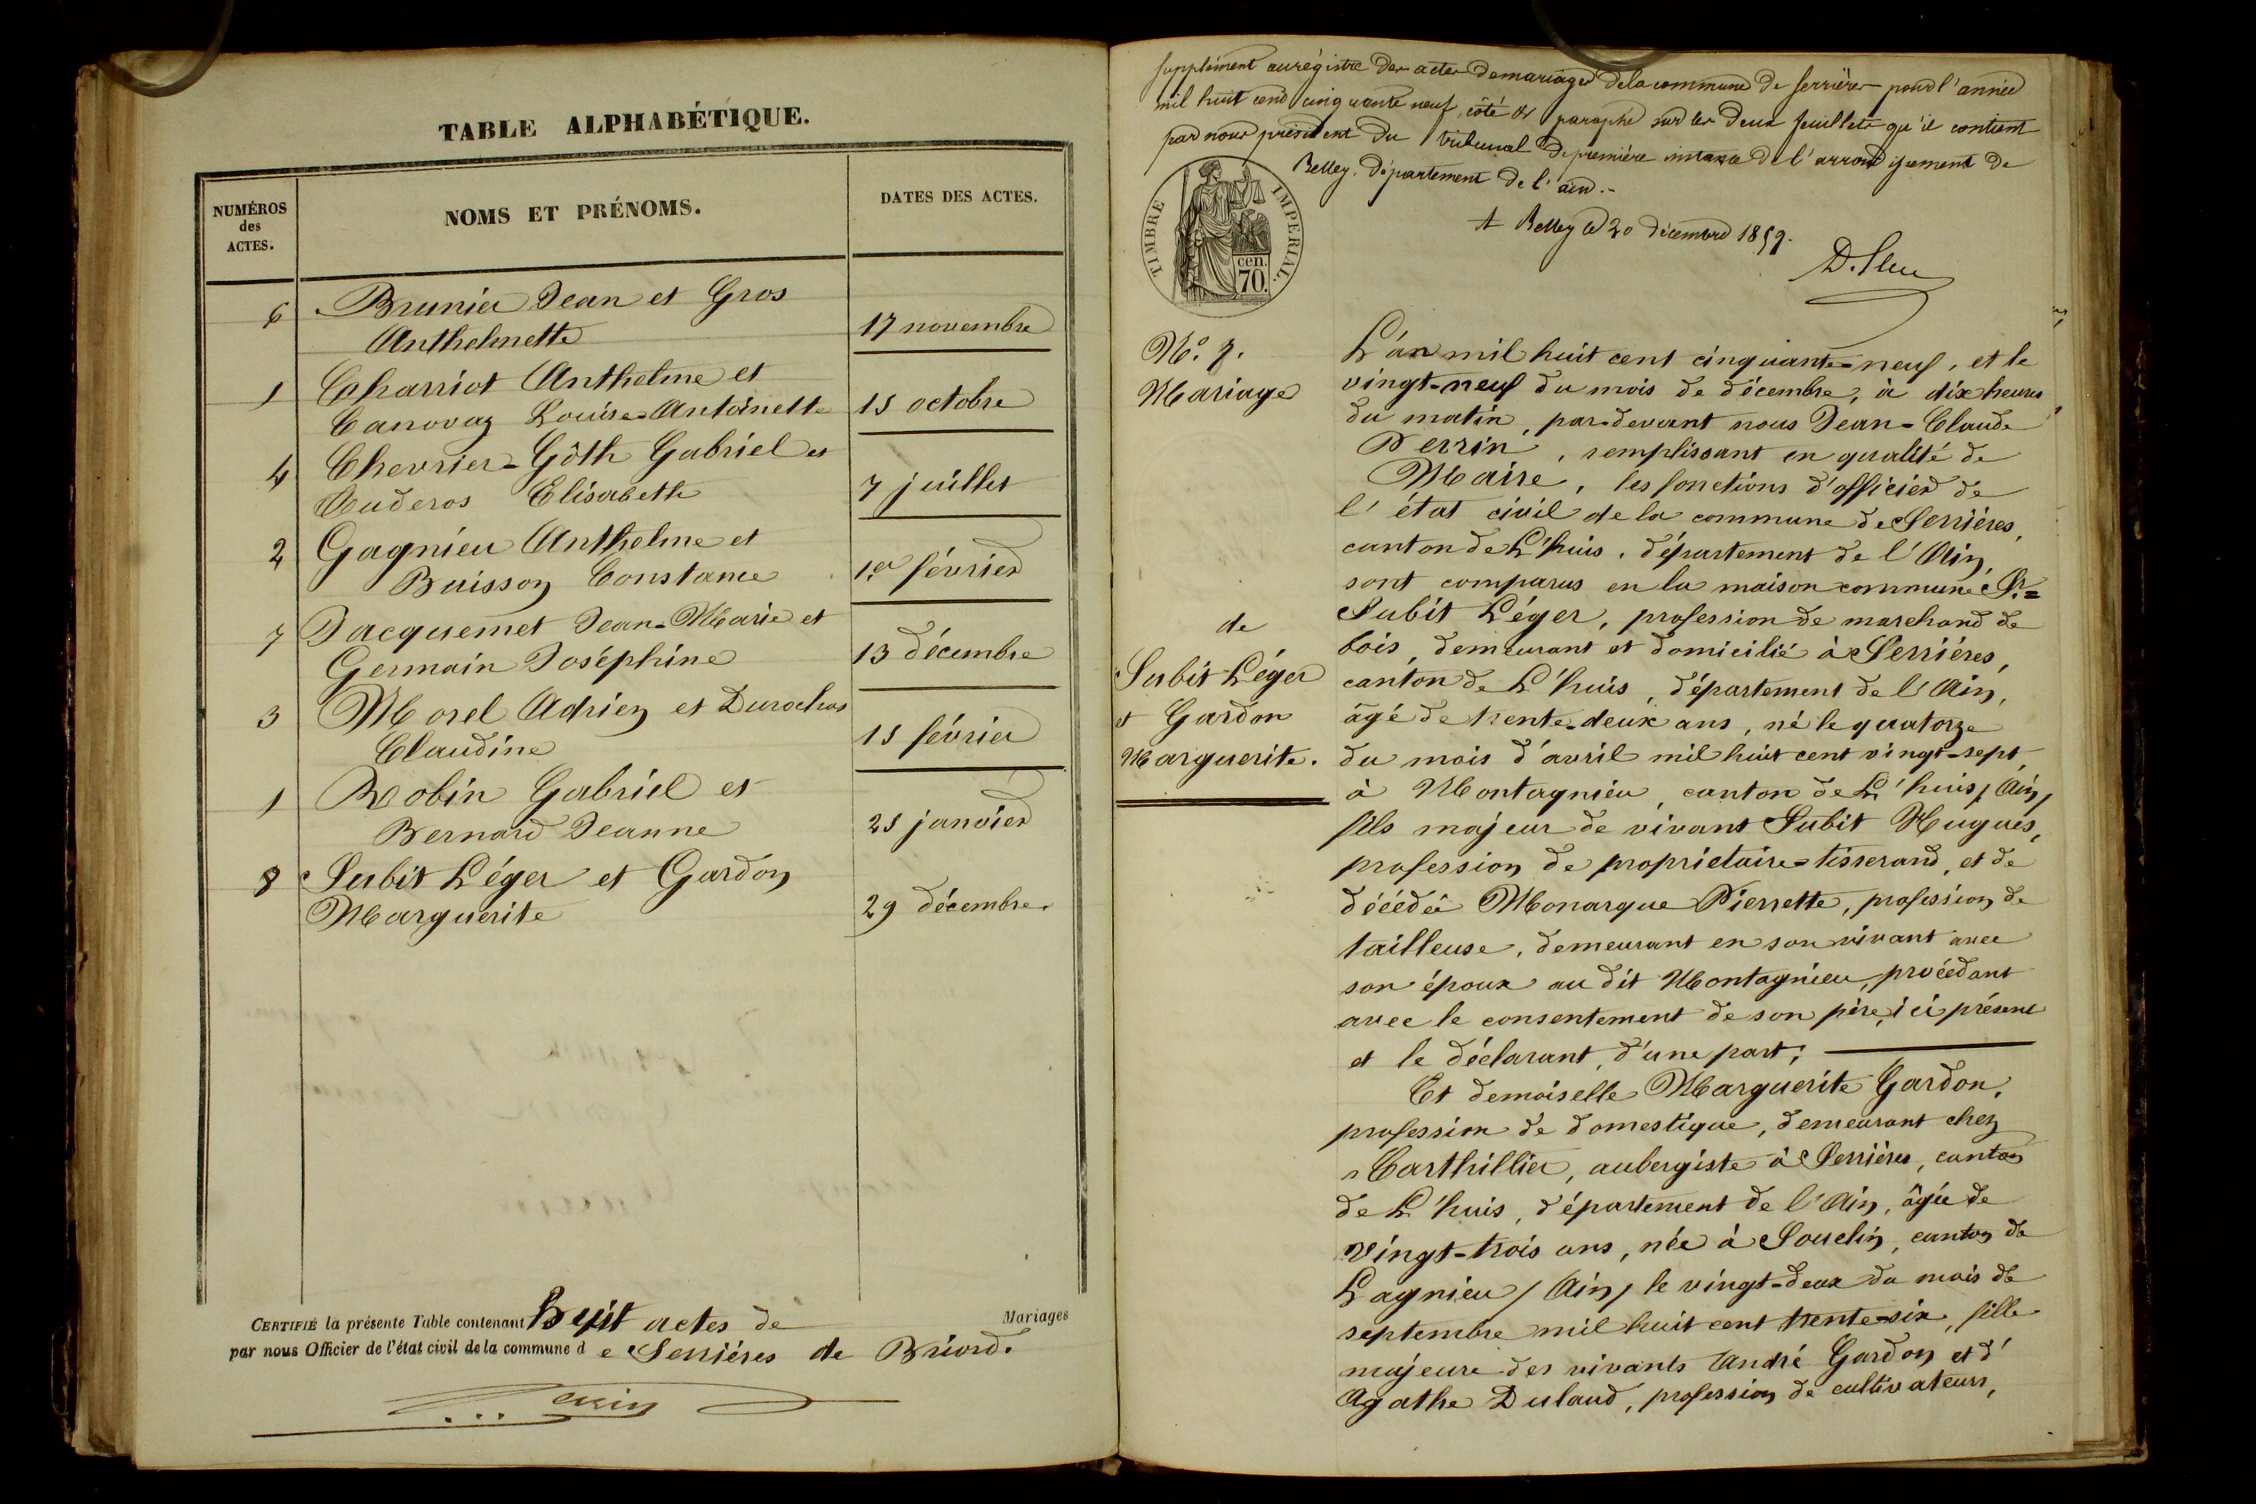 TABLE ALPHABÉTIQUE.
NUMÉROS
des
ACTES.
NOMS ET PRÉNOMS.
DATES DES ACTES.
6 Brunier Jean et Gros
Anthelmette
17 novembre
Charriot Anthelme et
Canovaz Louise-Antoinette
15 octobre
4 Chevrier-Gôth Gabriel et
Elisabeth
7 juillet
2 Gagnieu Anthelme et
Buisson Constance
1er février
7 Jacquemet Jean-Marie et
Germain Joséphine
13 décembre
3 Morel Adrien et
Claudine
15 février
1 Robin Gabriel et
Bernard Jeanne
25 janvier
8 Subit Léger et Gardon
Marguerite
29 décembre.
CERTIFIÉ la présente Table contenant huit actes de Mariages
par nous Officier de l'état civil de la commune de Serrières de Briord.
supplément au régistre des actes de mariages de la commune de Serrières pour l'année
mil huit cent cinquante neuf, côté et paraphé sur les deux feuillets qu'il contient
par nous président du tribunal de première instance de l'arrondissement de
Belley. Département de l'ain.-
TIMBRE IMPERIAL.
cen.
70.
A Belley le 20 décembre 1859.
N.º 8.
Mariage
de
Subit Léger
et Gardon
Marguerite.
L'an mil huit cent cinquante-neuf, et le
vingt-neuf du mois de décembre, à dix heures
du matin, par-devant nous Jean-Claude
Perrin, remplissant en qualité de
Maire, les fonctions d'officier de
l'état civil de la commune de Serrières,
canton de L'huis, département de l'Ain,
sont comparus en la maison commune Sr.=
Subit Léger, profession de marchand de
bois, demeurant et domicilié à Serrières,
canton de L'huis, département de l'Ain,
âgé de trente-deux ans, né le quatorze
du mois d'avril mil huit cent vingt-sept,
à Montagnieu, canton de L'huis / Ain /
fils majeur de vivant Subit Hugues,
profession de proprietaire-tisserand, et de
décédée Monarque Pierrette, profession de
tailleuse, demeurant en son vivant avec
son époux au dit Montagnieu, procédant
avec le consentement de son père, ici présent
et le déclarant, d'une part;
Et demoiselle Marguerite Gardon,
profession de domestique, demeurant chez
Carthillier, aubergiste à Serrières, canton
de L'huis, département de l'Ain, âgée de
vingt-trois ans, née à Souclin, canton de
Lagnieu / Ain / le vingt-deux du mois de
septembre mil huit cent trente-six, fille
majeure des vivants André Gardon et d'
Agathe Dulaud, profession de cultivateurs,